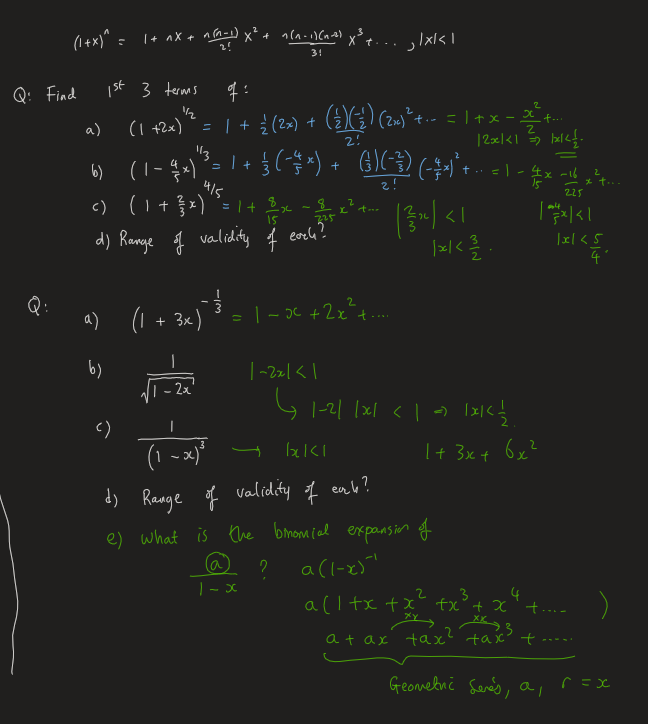 (1+x)^n = 1 + nx + n(n-1)/2! x^2 + n(n-1)(n-2)/3! x^3 + ... , |x|<1
Q: Find 1st 3 terms of:
a) (1 + 2x)^1/2 = 1 + 1/2 (2x) + (1/2)(-1/2)/2! (2x)^2 + ... = 1 + x - x^2/2 + ...
|2x|<1 ⇒ |x|<1/2.
b) (1 - 4/5 x)^1/3 = 1 + 1/3 (-4/5 x) + (1/3)(-2/3)/2! (-4/5 x)^2 + ... = 1 - 4/15 x - 16/225 x^2 + ...
c) (1 + 2/3 x)^4/5 = 1 + 8/15 x - 8/225 x^2 + ... |2/3 x| < 1 |-4/5 x| < 1
d) Range of validity of each? |x| < 3/2. |x| < 5/4.
Q: a) (1 + 3x)^-1/3 = 1 - x + 2x^2 + ....
b) 1/√(1 - 2x) |-2x| < 1
↳ |-2| |x| < 1 ⇒ |x| < 1/2.
c) 1/(1 - x)^3 → |x| < 1 1 + 3x + 6x^2
d) Range of validity of each?
e) What is the binomial expansion of
a/(1 - x) ? a(1-x)^-1
a(1 + x + x^2 + x^3 + x^4 + .... )
xx xx
a + ax + ax^2 + ax^3 + .....
Geometric Series, a, r = x